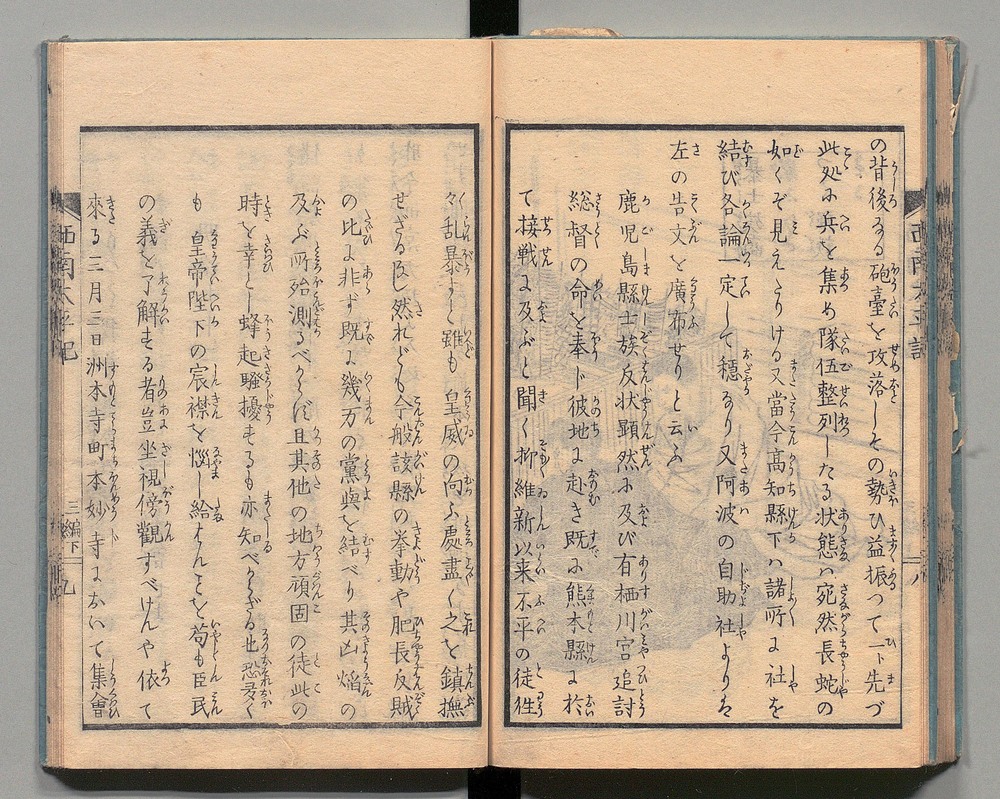 の背後なる砲臺を攻落しその勢ひ益振つて一ト先づ
此処に兵を集め隊伍整列したる状態ハ宛然長蛇の
如くぞ見えたりける又當今高知縣下ハ諸所に社を
結び各論一定して穏なり又阿波の自助社よりは
左の告文を廣布せりと云ふ
鹿児島縣士族反状顕然に及び有栖川宮追討
総督の命を奉じ彼地に赴き既に熊本縣に於
て接戦に及ぶと聞く抑維新以来不平の徒徃
西南太平記
八
々乱暴よく雖も 皇威の向ふ處盡く之を鎮撫
せざるなし然れども今般該縣の挙動や肥長反賊
の比に非ず既に幾万の黨與を結べり其凶焔の
及ぶ所殆測るべからず且其他の地方頑固の徒此の
時を幸とし蜂起騒擾するも亦知べからざる也恐多く
も 皇帝陛下の宸襟を惱し給はんことを苟も臣民
の義を了解する者豈坐視傍觀すべけんや依て
來る三月三日洲本寺町本妙寺において集會
西南太平記
三編下
九